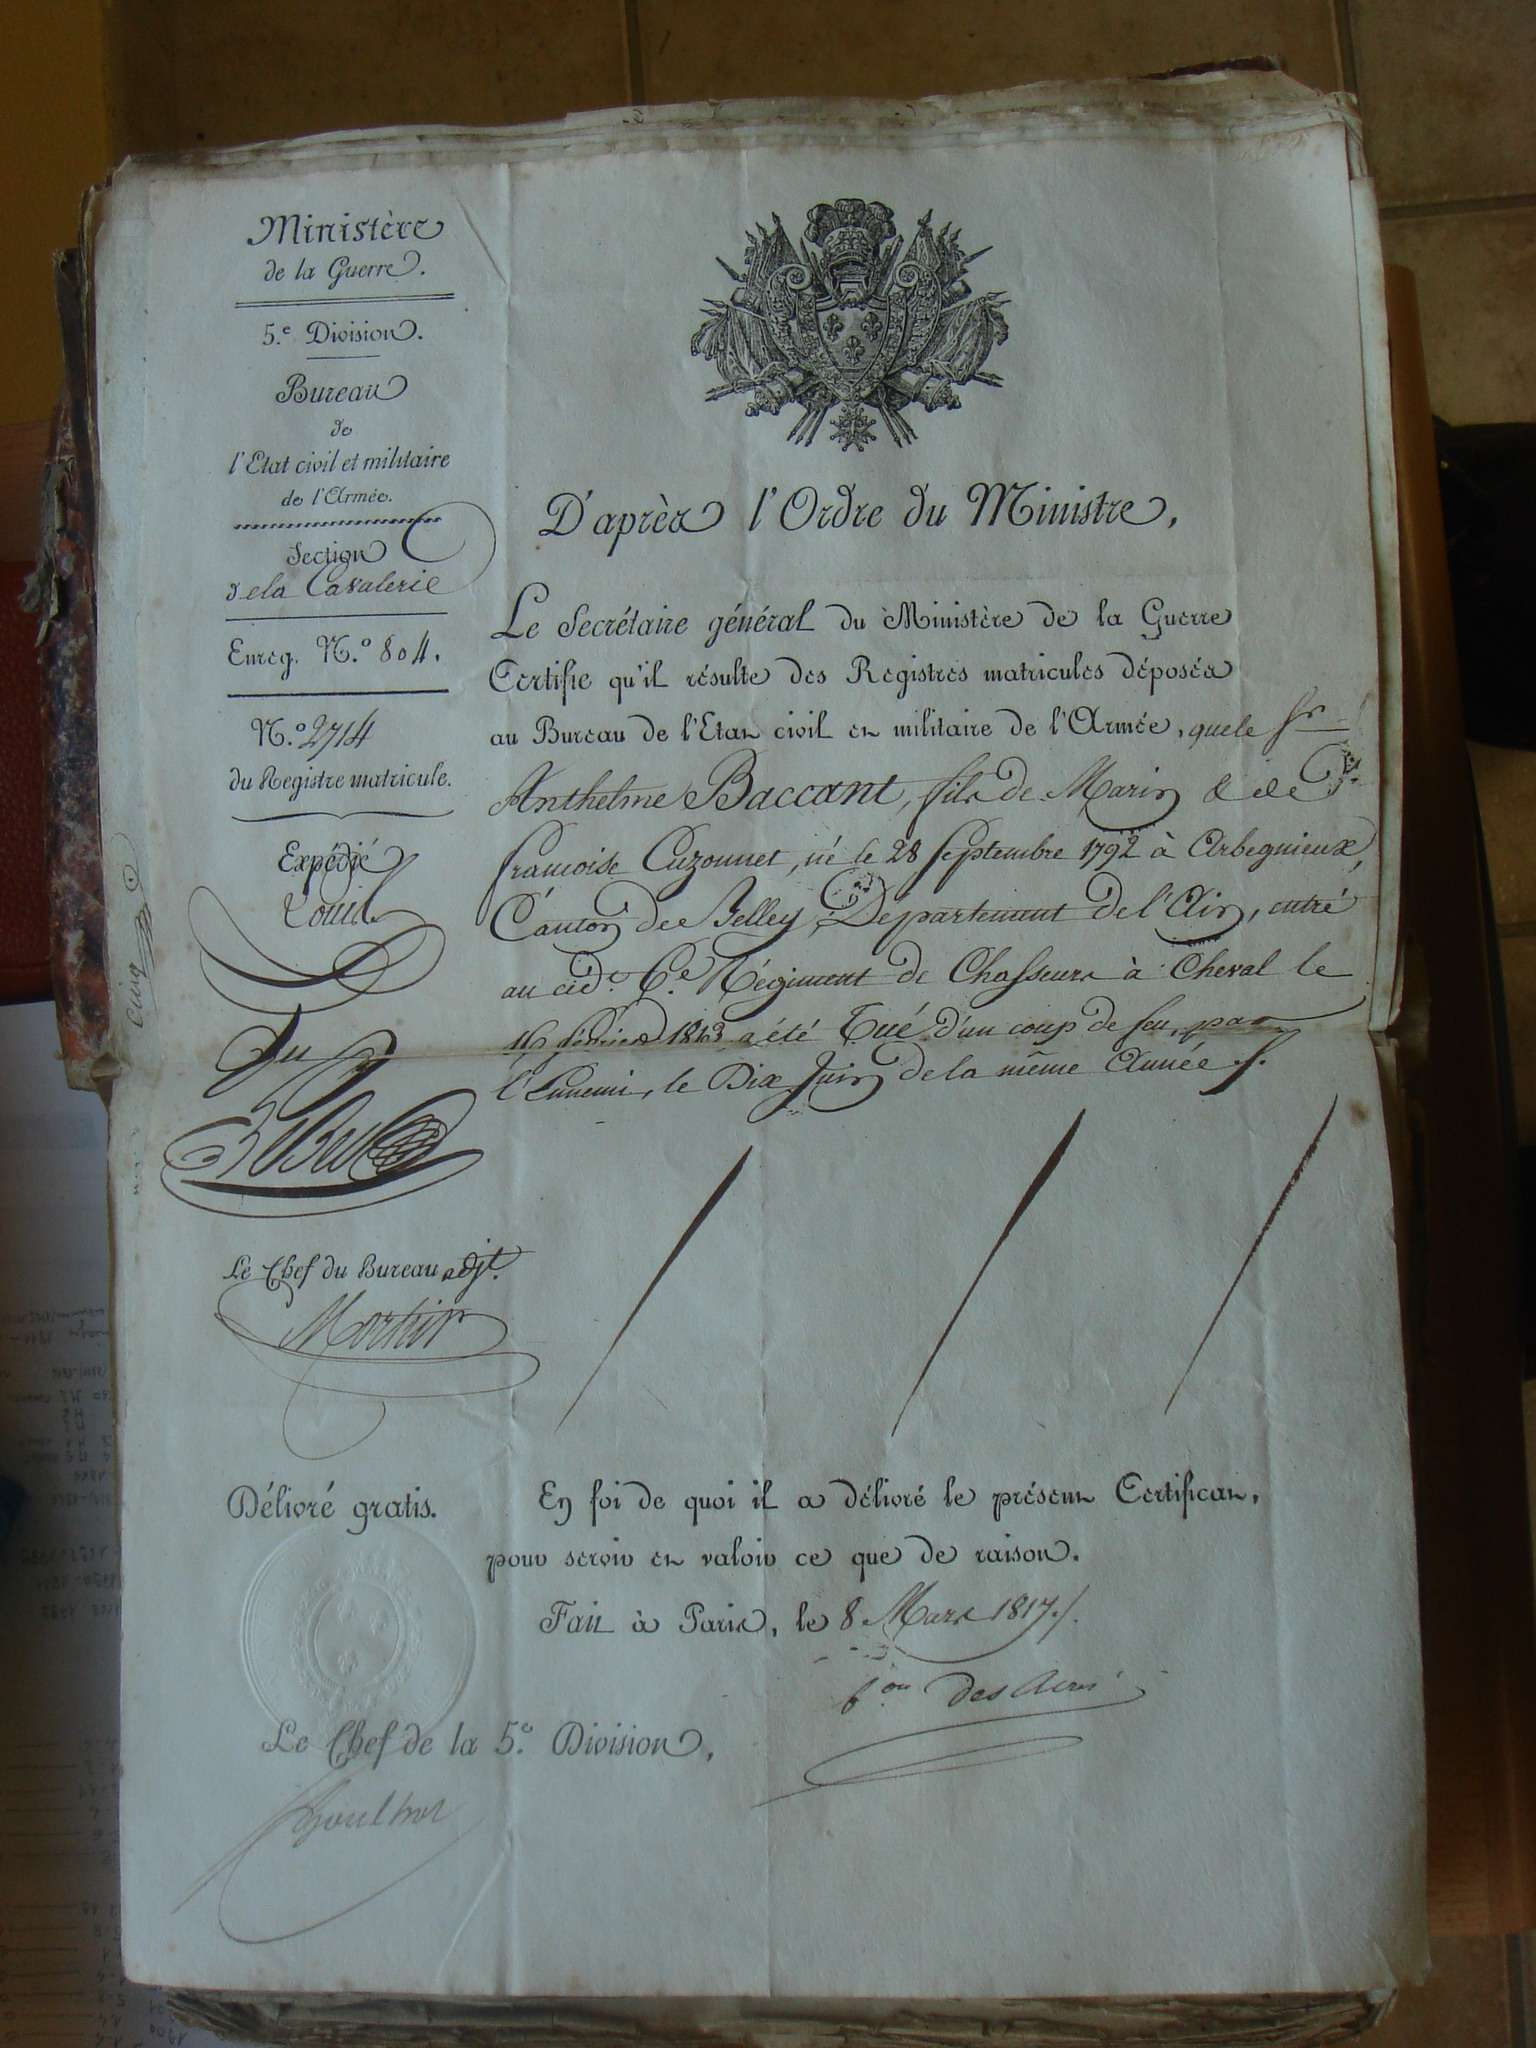 Ministère
de la Guerre.
5.e Division.
Bureau
de
l'Etat civil et militaire
de l'Armée.
Section
de la Cavalerie
Enreg. N.o 804.
N.o 2714
du Registre matricule.
Expédié
Louis.
Le Chef du Bureau adjt.
Délivré gratis.
D'après l'Ordre du Ministre,
Le Secrétaire général du Ministère de la Guerre
Certifie qu'il résulte des Registres matricules déposés
au Bureau de l'Etat civil et militaire de l'Armée, que le Sr.
Anthelme Baccant, fils de Marin & de
françoise Cuzonnet, né le 28 Septembre 1792 à Arbegnieux,
Canton de Belley, Département de l'Ain, entré
au cid. 6.e Régiment de Chasseurs à Cheval le
16 février 1813 a été Tué d'un coup de feu, par
l'Ennemi, le Dix Juin de la même Année ./.
En foi de quoi il a délivré le présent Certificat,
pour servir et valoir ce que de raison.
Fait à Paris, le 8 Mars 1817./.
Le Chef de la 5.e Division,
Cinq